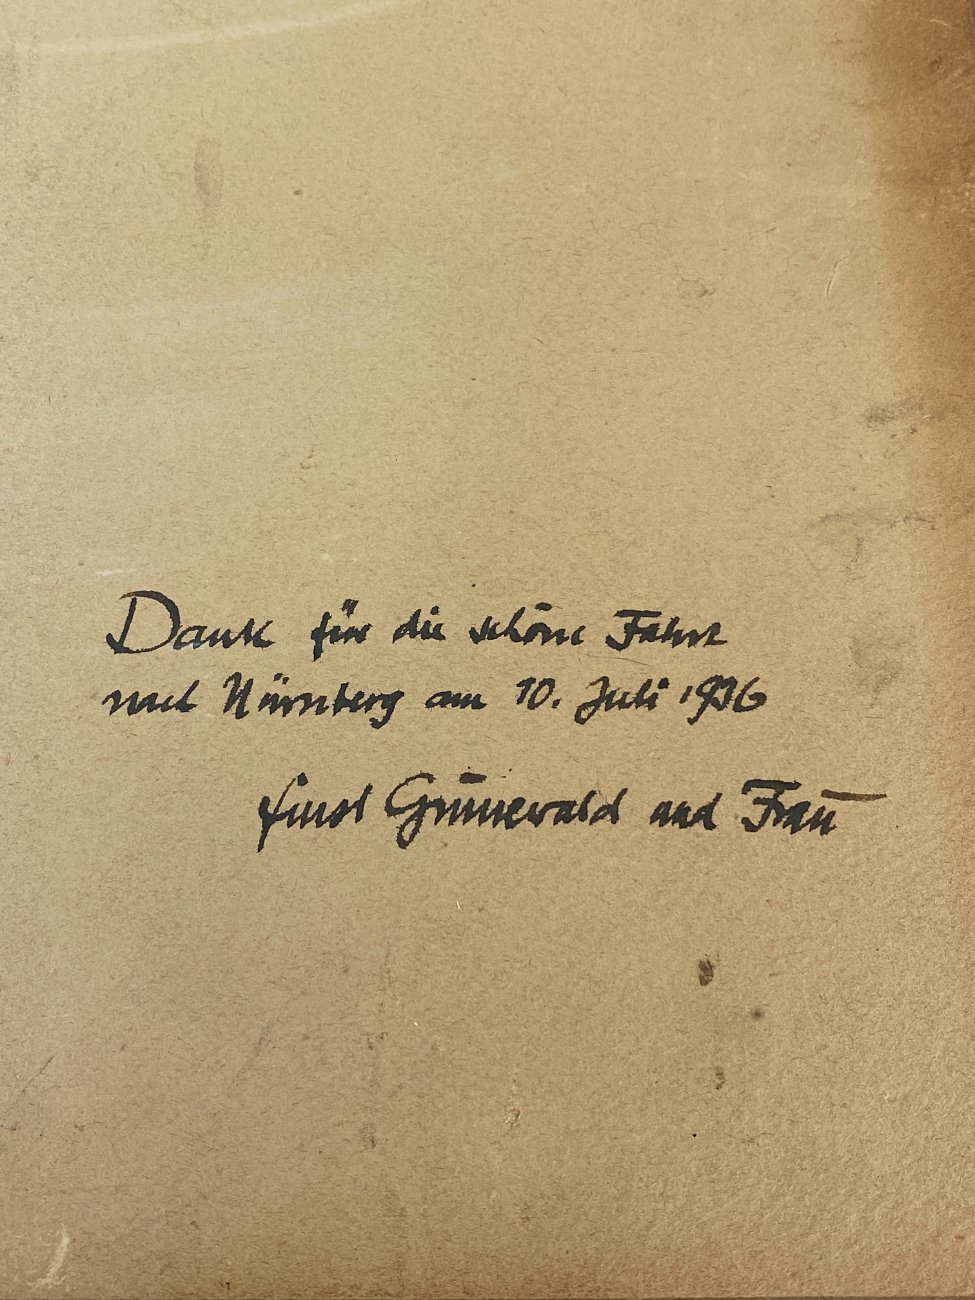 Dank für die schöne Fahrt
nach Nürnberg am 10. Juli 1936
Ernst Grünewald und Frau